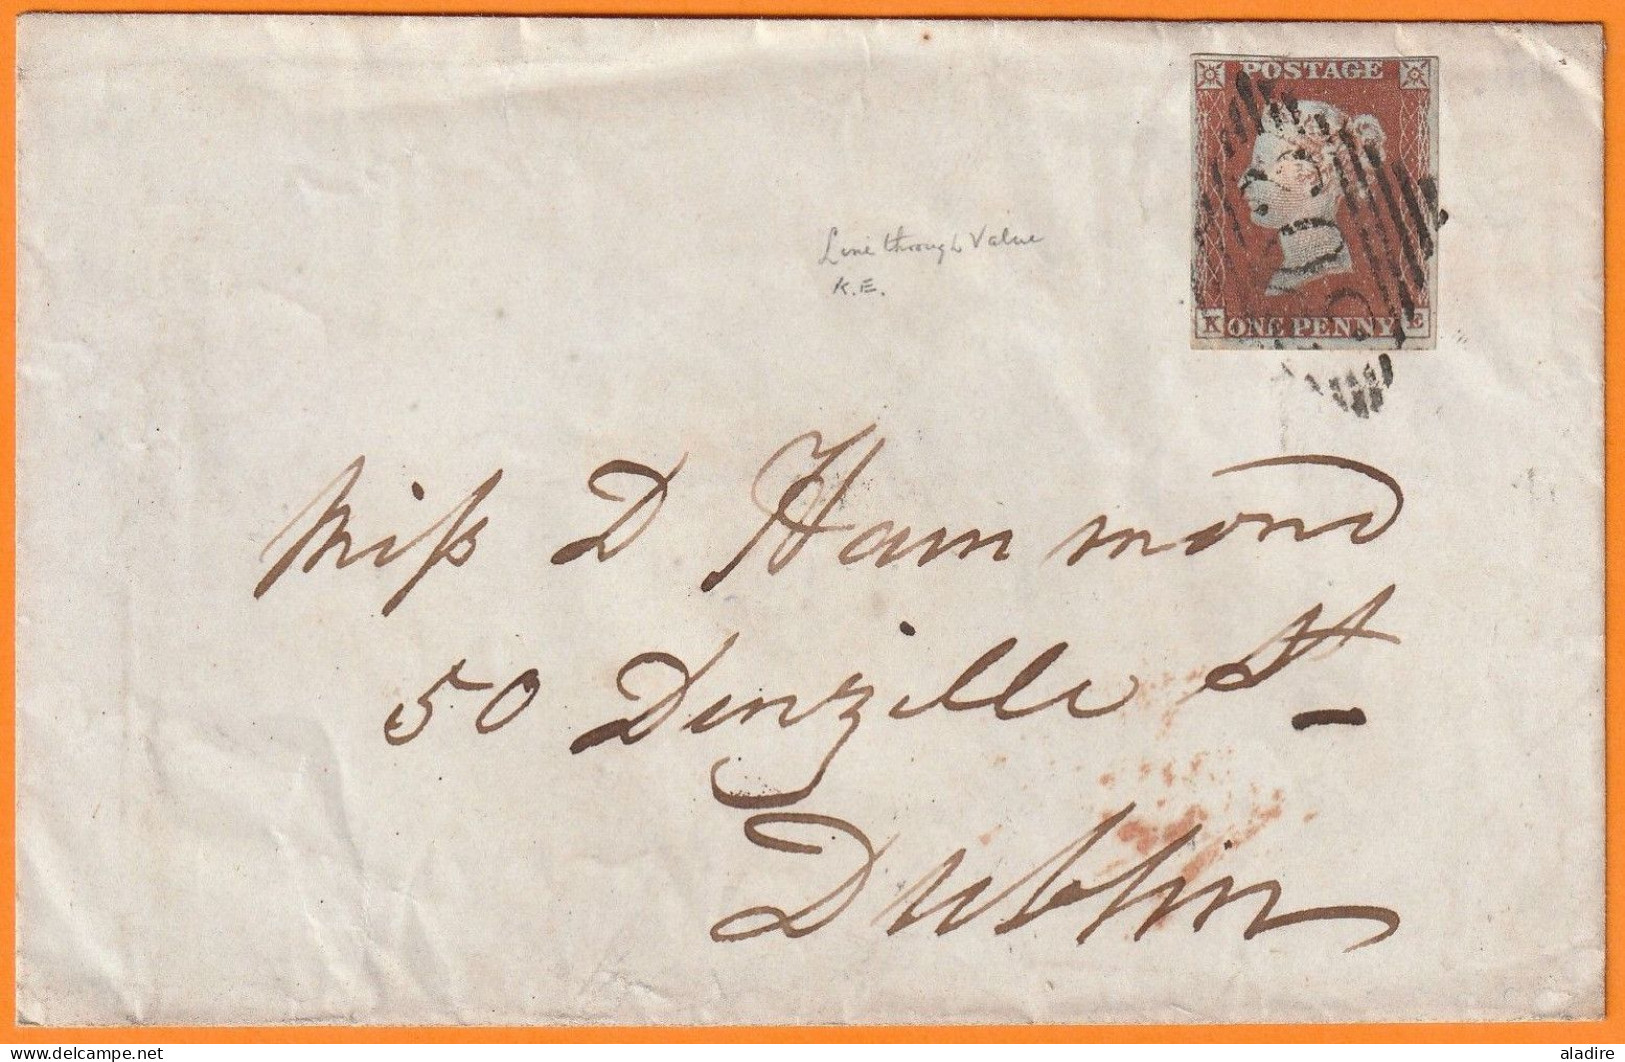 POSTAGE
K ONE PENNY E
Line through Value
K.E.
Miſs D Hammond
50 Denzille St
Dublin
delcampe.net
aladire